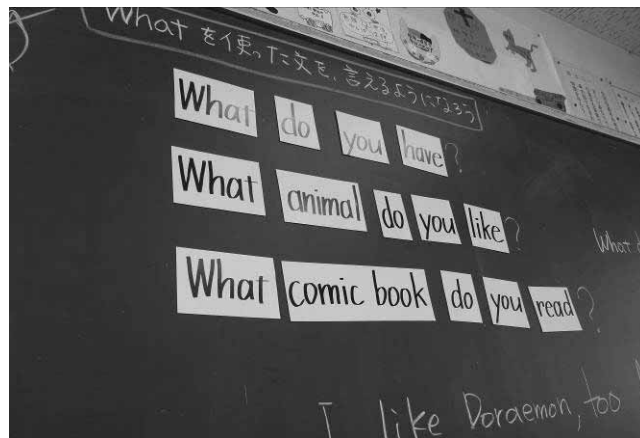 What を使った文を、言えるようになろう
What do you have?
What animal do you like?
What
What comic book do you read?
I like Doraemon, too